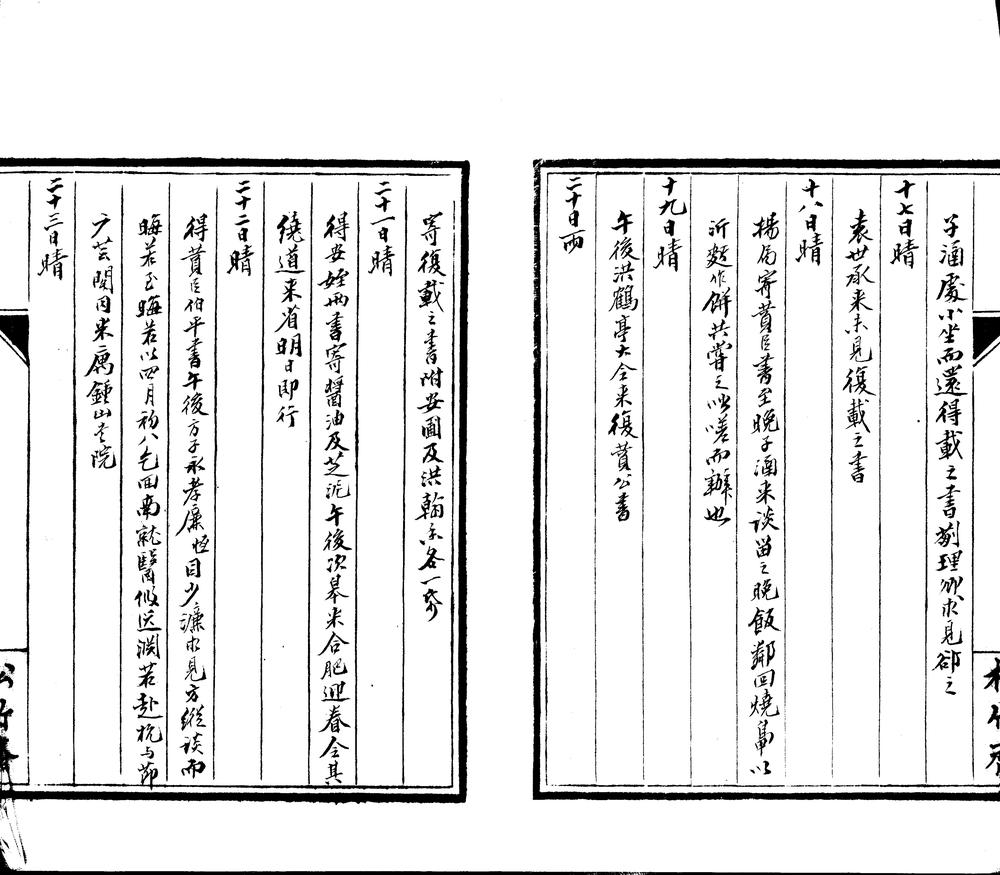 子涵處小坐而還得載之書劉理卿求見卻之
十七日晴
袁世承来未見復載之書
十八日晴
楊局寄蕢臣書至晚子涵来谈留之晚飯鄰回燒鼻以
沂麪作餅共嘗之咄嗟而辦也
十九日晴
午後洪鶴亭大令来復蕢公書
二十日雨
寄復載之書附安圃及洪翰香各一帋
二十一日晴
得安姪两書寄醬油及芝泥午後次皋来合肥迎眷令其
繞道来省明日即行
二十二日晴
得蕢臣伯平書午後方子永孝廉恆自少濂求見方縱谈而
晦若至晦若以四月初八乞回南就醫後送淵若赴杭与節
广芸閣同来寓鍾山書院
二十三日晴
松竹齋